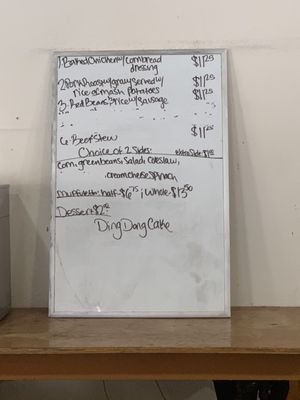 1. Baked Chicken w/ cornbread $11.25
dressing
2. Pork Roast w/ gravy served w/ $11.25
rice or mash potatoes $11.25
3. Red Beans & rice w/ sausage
6. Beef Stew $11.25
Choice of 2 Sides:
extra side
Corn, green beans, Salad, Coleslaw,
cream cheese Spinach
Muffuletta: half-$6.75; whole-$13.50
Dessert $2
Ding Dong Cake